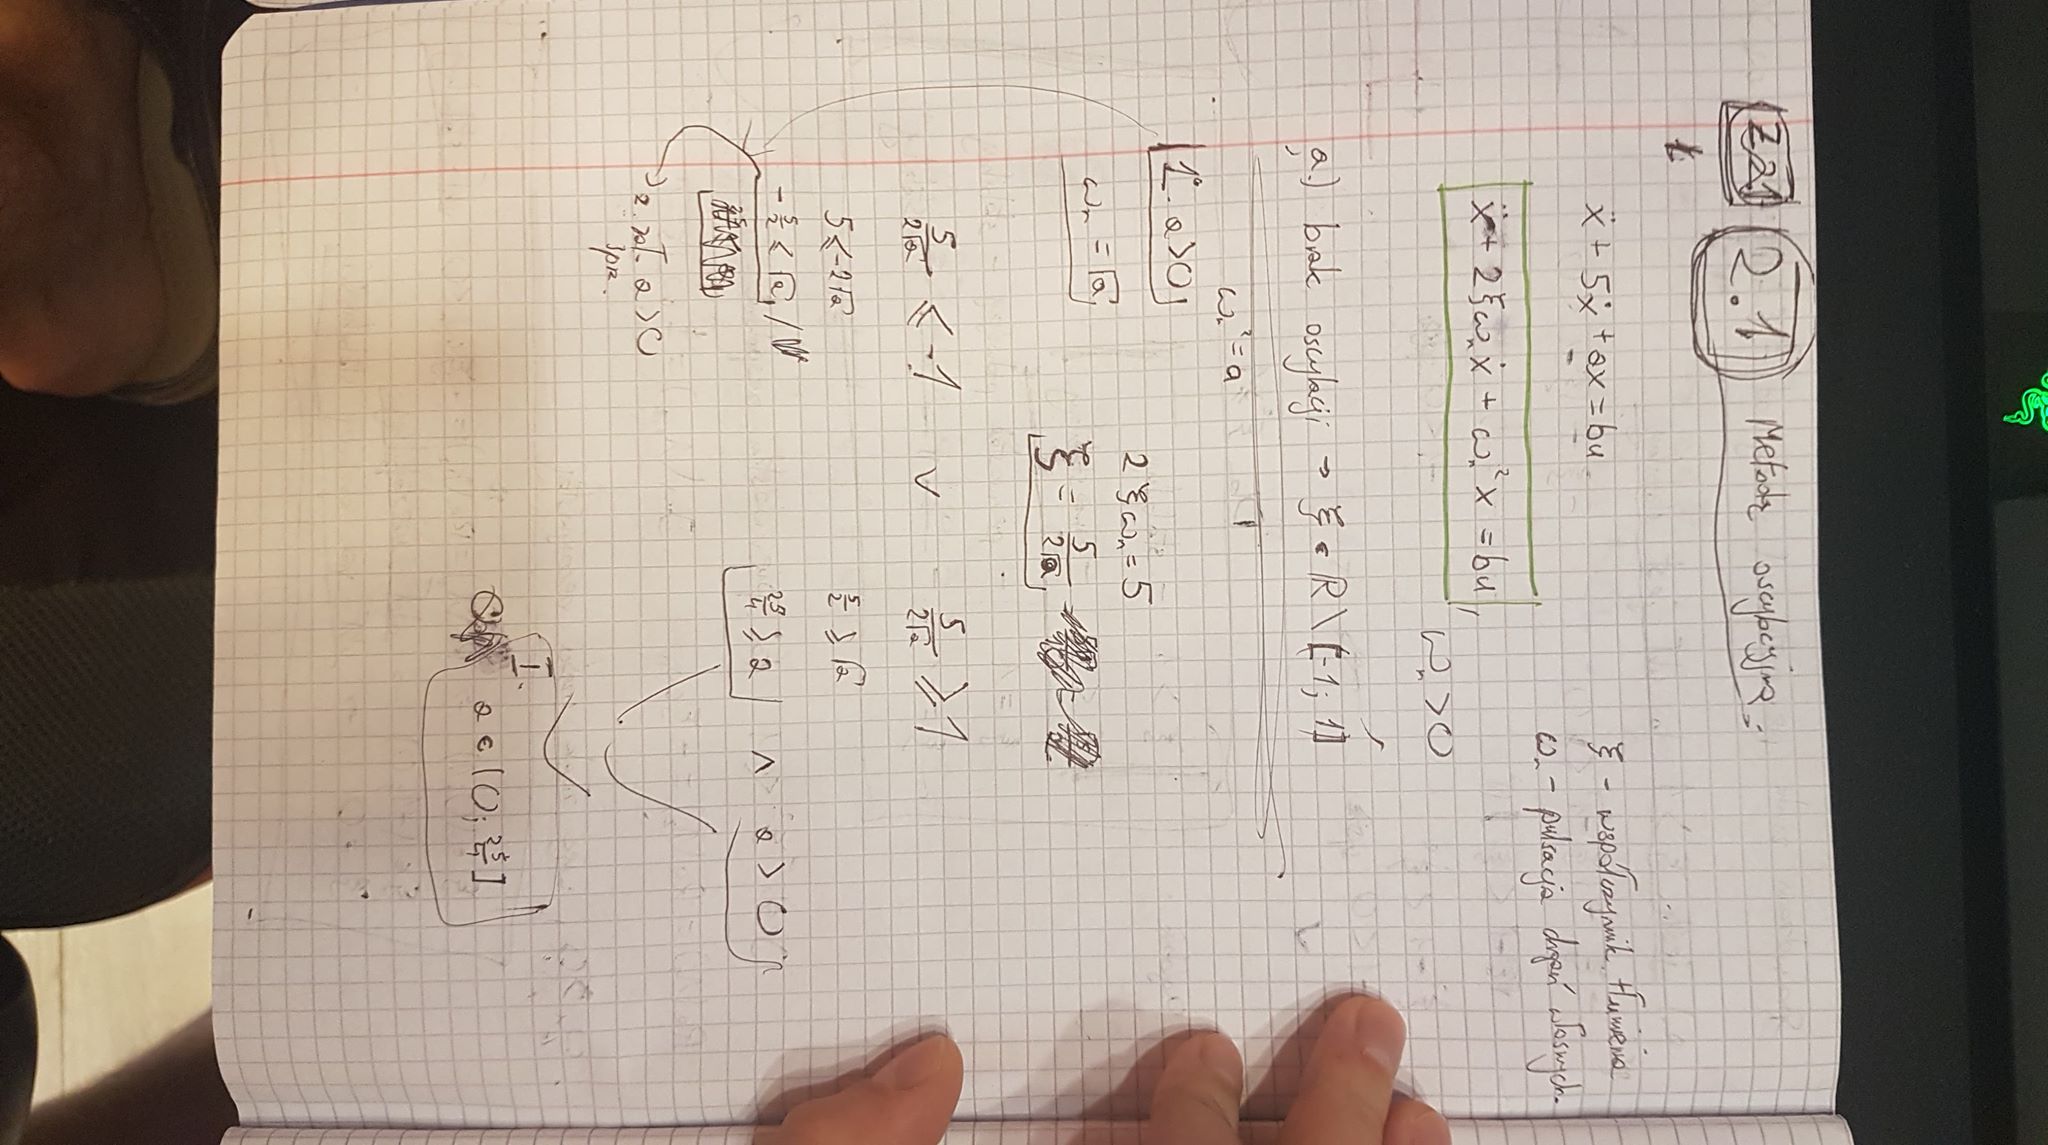 Z.2.1 2.1 Metodą oscylacyjną:
ẍ + 5ẋ + ax = bu
ξ - współczynnik tłumienia
ωₙ - pulsacja drgań własnych.
ẍ + 2ξωₙẋ + ωₙ²x = bu,
ωₙ > 0
a.) brak oscylacji → ξ ∈ R \ [-1; 1]
ωₙ² = a
1°. a > 0
2ξωₙ = 5
ωₙ = √a
ξ = 5/(2√a)
5/(2√a) ≤ -1 ∨ 5/(2√a) ≥ 1
5 ≤ -2√a
5/2 ≥ √a
-5/2 ≤ √a /
25/4 ≥ a ∧ a > 0
z zał. a > 0
spr.
I.
a ∈ (0; 25/4]